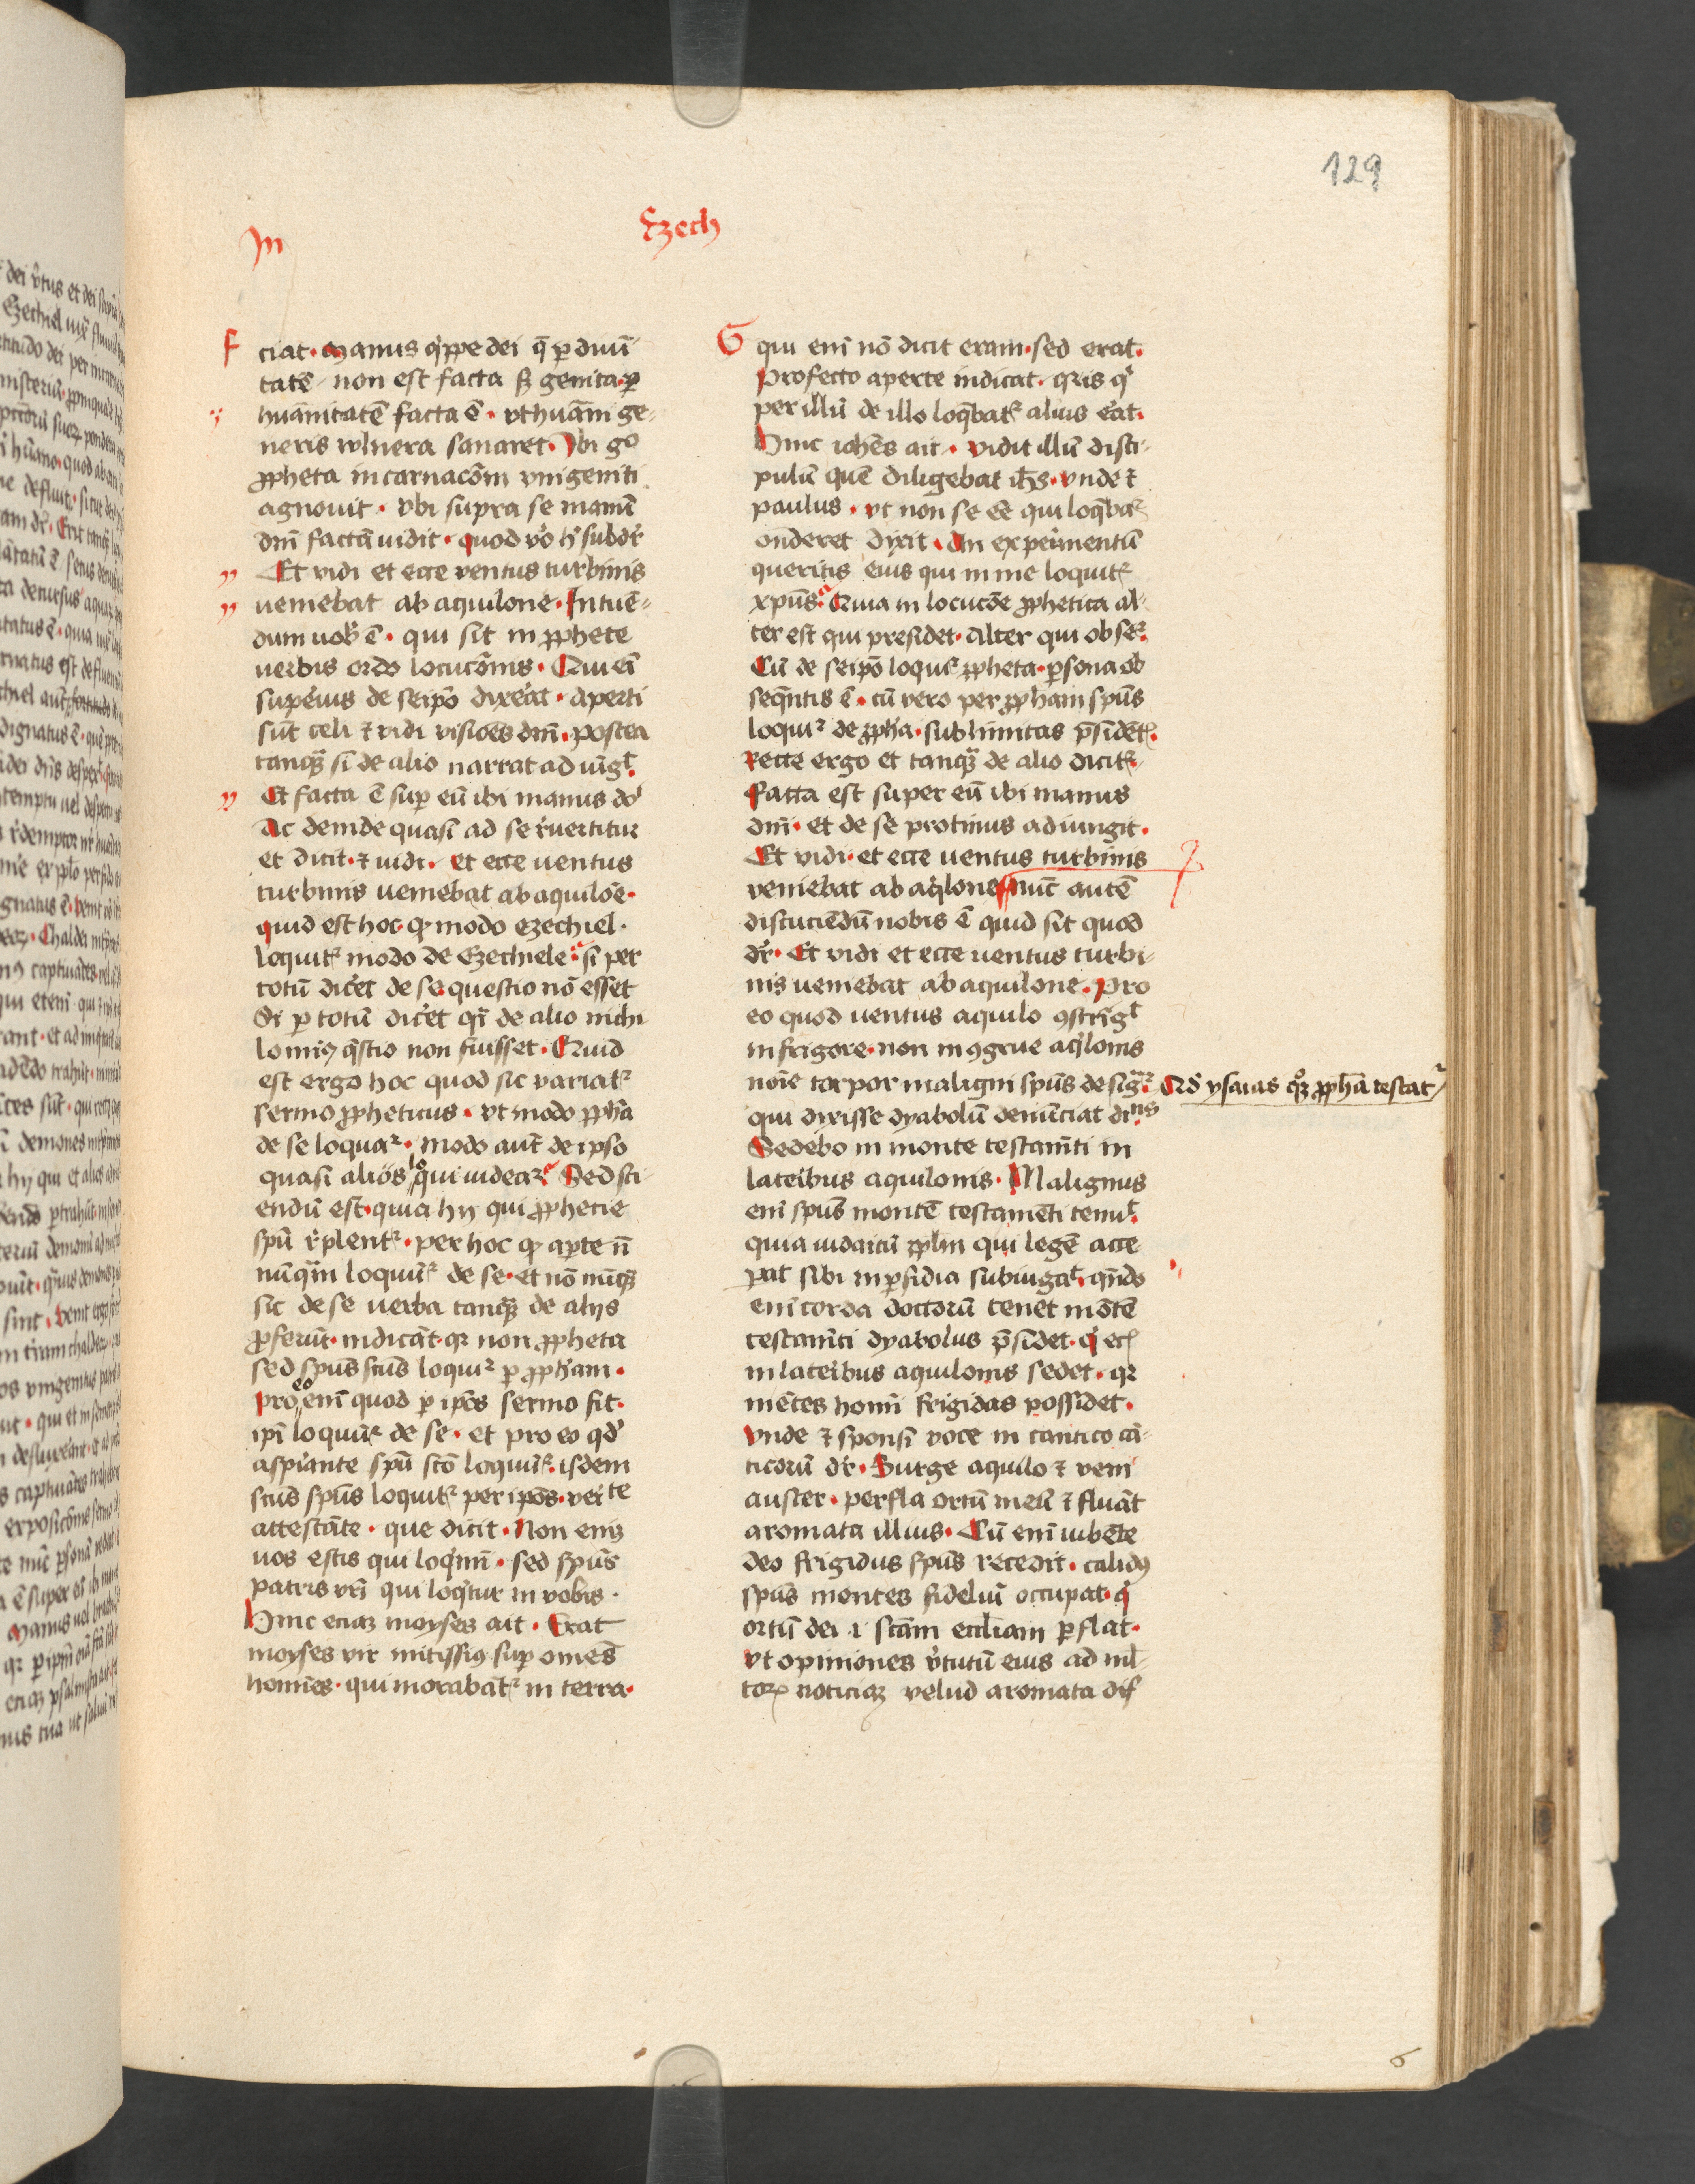 129
In
Ezech
F
ciat. Manus q̇ppe dei q̄ ꝑ diuī
tatē non est facta sꝫ genita. ꝑ
huānitatē facta ē. vt huāni ge
neris vulnera sanaret. Ibi gͦ
ꝓpheta incarnacōm vnigeniti
agnouit. vbi supra se manū
dnī factā uidit. quod vͦo hͥ subdr̄
Et vidi et ecce ventus turbinis
ueniebat ab aquilone. Intuē
dum uob̄ ē. qui sit in ꝓphete
uerbis ordo locucōnis. Qui eī
supeᷣius de seipō dixeᷣat. aperti
sūt celi ⁊ vidi visiōes dnī. postea
tanqꝫ si de alio narrat adiūgꝉ.
Et facta ē suꝑ eū ibi manus dōi
Ac deinde quasi ad se rͤuertitur
et dicit. ⁊ uidi. et ecce uentus
turbinis ueniebat ab aquilōe.
quid est hoc. qꝫ modo ezechiel.
loquitᷣ modo de Ezechiele. si per
totū dicēt de se questio nō esset
Si ꝑ totū dicēt qͥ de alio nichi
lomiꝰ q̄stio non fuisset. Quid
est ergo hoc quod sic variatᷣ
sermo ꝓpheticus. vt modo ꝓph̄a
de se loquaᷣ. modo aut̄ de ipso
quasi alios loqui uideaᷣ. Sed sci
endū est. quia hij qui ꝓphecie
spū rͤplentᷣ. per hoc qꝫ aꝑte nō
nūqͣm loquūᷣ de se. et nō nūqꝫ
sic de se uerba tanqꝫ de alijs
ꝓferūt. indicāt. qꝛ non ꝓpheta
sed spūs scūs loquiᷣ ꝑ ꝓph̄am.
Pro eo enī quod ꝑ ipōs sermo fit.
ipī loquūᷣ de se. et pro eo qd̓
aspirante spū scō loquūᷣ. isdem
scūs spūs loquitᷣ per ipōs. veite
attestāte. que dicit. Non enīꝫ
uos estis qui loq̇minī. sed spūs
patris vrī qui loq̇tur in vobis.
Hinc eciaꝫ moyses ait. Erat
moyses vir mitissiꝰ suꝑ omēs
homīes. qui morabātᷣ in terra.
G
qui enī nō dicit eram. sed erat.
Profecto aperte indicat. qꝛ is qͥ
per illū de illo loq̄batᷣ alius eᷣat.
Hinc ioh̄es ait. vidit illū disci
pulū quē diligebat ih̄s. vnde ⁊
paulus. vt non se eē qui loq̄baᷣ
onderet dixit. An expeᷣimentū
queritis eius qui in me loquitᷣ
xpūs. Quia in locucōe ꝓphetica al
ter est qui presidet. Alter qui obseᷣ.
Cū de seipō loquiᷣ ꝓpheta. ꝑsona ob
seq̄ntis ē. cū vero per ꝓph̄am spūs
loquiᷣ de ꝓph̄a. sublimitas p̄sidētᷣ.
Recte ergo et tanqꝫ de alio dicitᷣ.
Facta est super eū ibi manus
dnī. et de se protinus adiungit.
Et vidi. et ecce uentus turbinis
veniebat ab aq̇lone. Nūc autē
discuciēdū nobis ē quid sit quod
dr̄. Et vidi et ecce uentus turbi
nis ueniebat ab aquilone. Pro
eo quod uentus aquilo ꝯstrīgꝉ
in frigore. non inꝯgrue aq̇lonis
noīe torpor maligni spūs desigᷣ.
Qd̓ ysaias qͦqꝫ ꝓph̄a testatᷣ
qui dixisse dyabolū denūciat dnīs
Sedebo in monte testamīti in
lateribus aquilonis. Malignus
enī spūs montē testamēti tenuꝉ.
quia iudaicū ꝓplm̄ qui legē acce
pat sibi in ꝑfidia subiugaꝉ. qn̄do
enī corda doctorū tenet mōtē
testamīti dyabolus p̄sidet. qͥ ecᷣ
in lateribus aquilonis sedet. qꝛ
mētes homī frigidas possidet.
Vnde ⁊ sponsi voce in cantico cā
ticorū dr̄. Surge aquilo ⁊ veni
auster. perfla ortū meū ⁊ fluāt
aromata illius. Cū enī iubēte
deo frigidus spūs recedit. calidꝰ
spūs mentes fideliū occupat. qͥ
ortū dei .i. scām eccliam ꝑflat.
vt opiniones vͥtutū eius ad mł
torꝫ noticiaꝫ velud aromata dif
6